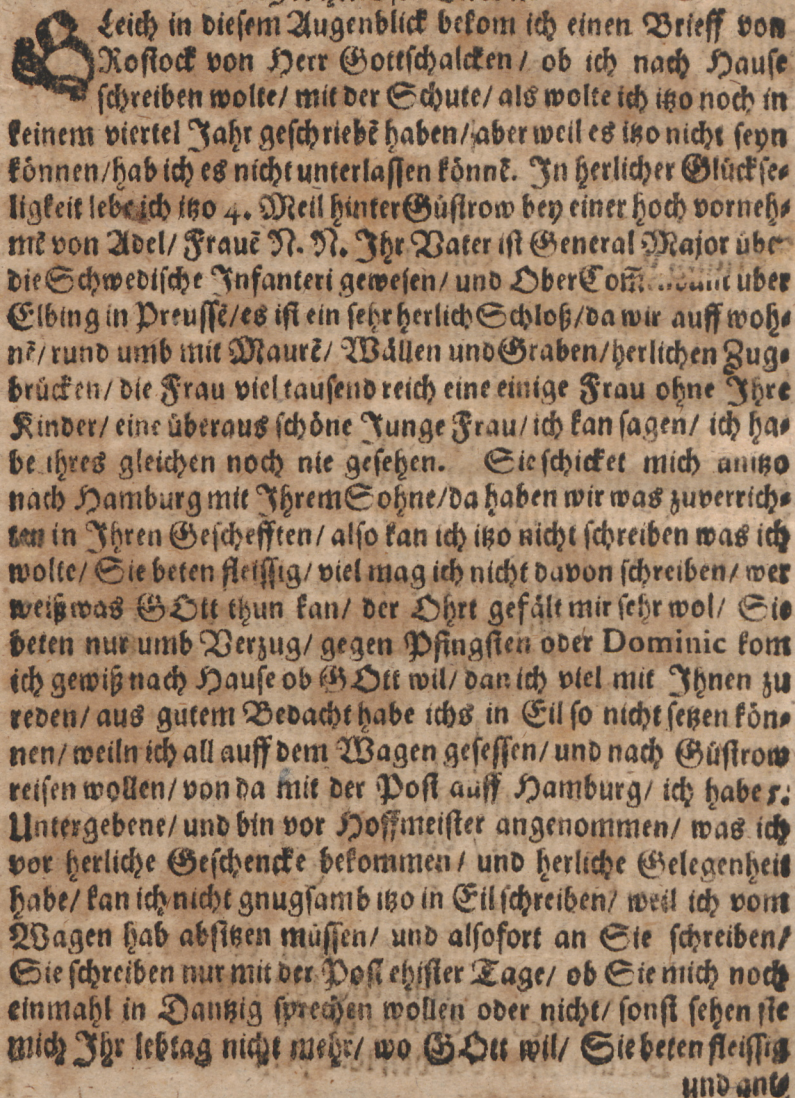 GLeich in diesem Augenblick bekom ich einen Brieff von
Rostock von Herr Gottschalcken / ob ich nach Hause
schreiben wolte / mit der Schute / als wolte ich itzo noch in
keinem viertel Jahr geschriebẽ haben / aber weil es itzo nicht seyn
können / hab ich es nicht unterlassen könnẽ. In herlicher Glückse-
ligkeit lebe ich itzo 4. Meil hinter Güstrow bey einer hoch vorneh-
mẽ von Adel / Frauẽ N. N. Ihr Vater ist General Major über
die Schwedische Infanteri gewesen / und Ober uber
Elbing in Preussẽ / es ist ein sehr herlich Schloß / da wir auff woh-
nẽ / rund umb mit Maurẽ / Wällen und Graben / herlichen Zug-
brücken / die Frau viel tausend reich eine einige Frau ohne Ihre
Kinder / eine überaus schöne Junge Frau / ich kan sagen / ich ha-
be ihres gleichen noch nie gesehen. Sie schicket mich anitzo
nach Hamburg mit Ihrem Sohne / da haben wir was zuverrich-
ten in Ihren Geschefften / also kan ich itzo nicht schreiben was ich
wolte / Sie beten fleissig / viel mag ich nicht davon schreiben / wer
weiß was GOtt thun kan / der Ohrt gefält mir sehr wol / Sie
beten nur umb Verzug / gegen Pfingsten oder Dominic kom
ich gewiß nach Hause ob GOtt wil / dan ich viel mit Ihnen zu
reden / aus gutem Bedacht habe ichs in Eil so nicht setzen kön-
nen / weiln ich all auff dem Wagen gesessen / und nach Güstrow
reisen wollen / von da mit der Post auff Hamburg / ich habe
Untergebene / und bin vor Hoffmeister angenommen / was ich
vor herliche Geschencke bekommen / und herliche Gelegenheit
habe / kan ich nicht gnugsamb itzo in Eil schreiben / weil ich vom
Wagen hab absitzen müssen / und alsofort an Sie schreiben /
Sie schreiben nur mit der Post ehister Tage / ob Sie mich noch
einmahl in Dantzig sprechen wollen oder nicht / sonst sehen sie
mich Ihr lebtag nicht mehr / wo GOtt wil / Sie beten fleissig
und ant-